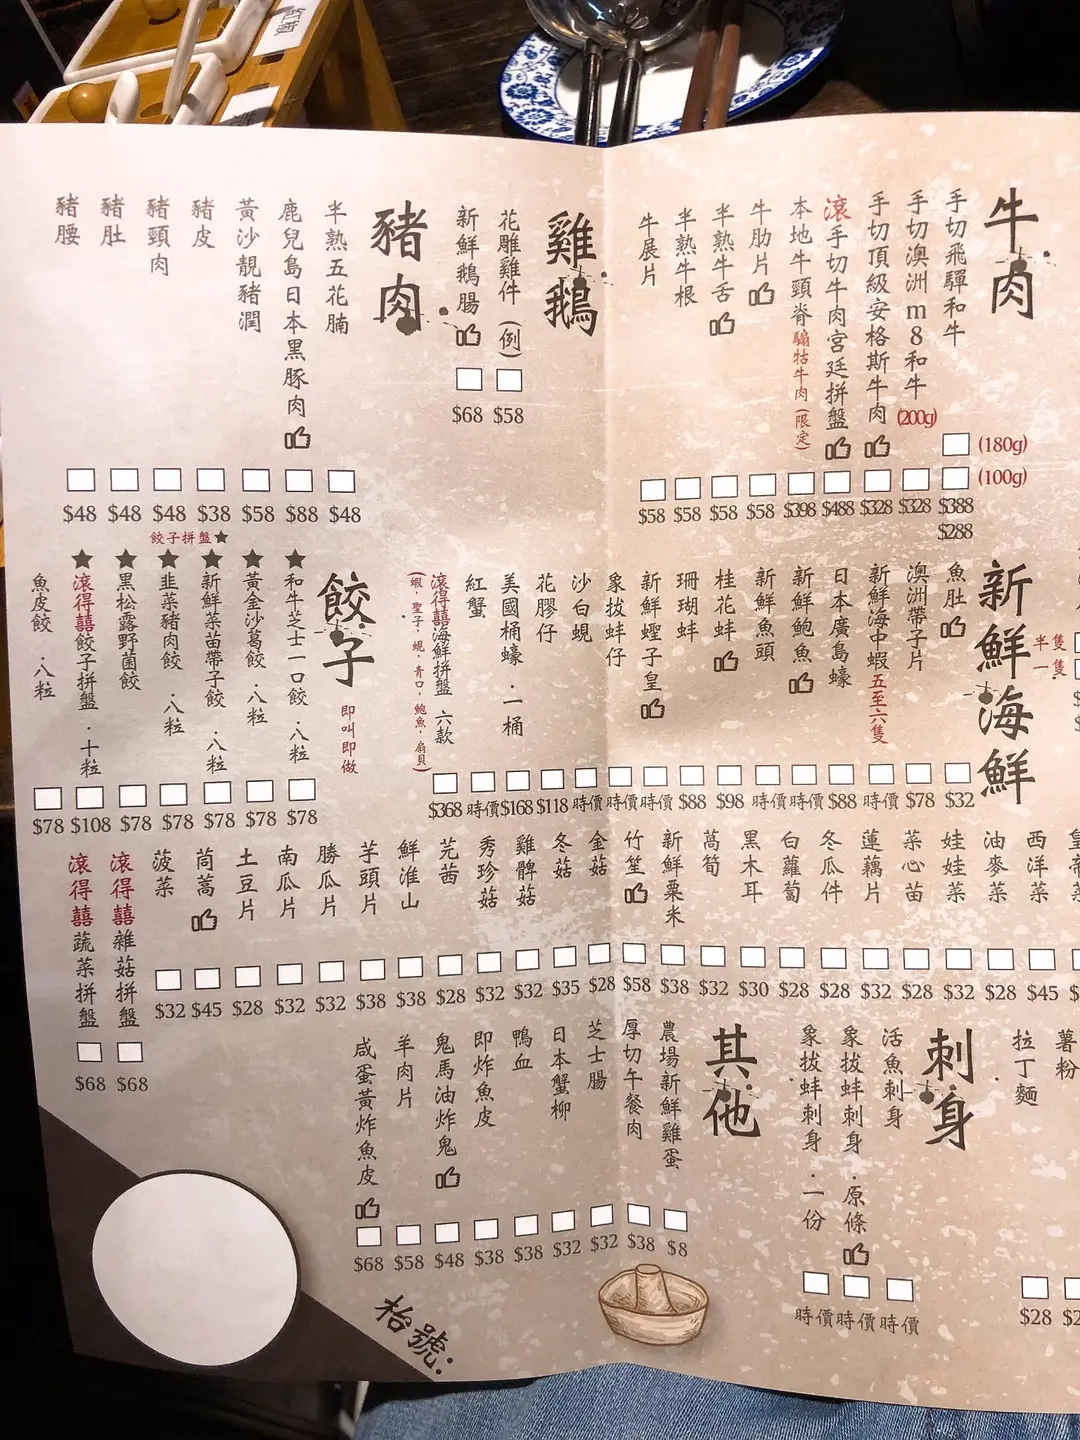 紅椒
牛肉
手切飛驒和牛 (180g) $388 (100g) $288
手切澳洲m8和牛 (200g) $328
手切頂級安格斯牛肉 $328
滾手切牛肉宮廷拼盤 $488
本地牛頸脊 騸牯牛肉(限定) $398
牛肋片 $58
半熟牛舌 $58
半熟牛根 $58
牛展片 $58
雞鵝
花雕雞件(例) $58
新鮮鵝腸 $68
豬肉
半熟五花腩 $48
鹿兒島日本黑豚肉 $88
黃沙靚豬潤 $58
豬皮 $38
豬頸肉 $48
豬肚 $48
豬腰 $48
新鮮海鮮
半隻
一隻
魚肚 $32
澳洲帶子片 $78
新鮮海中蝦 五至六隻 時價
日本廣島蠔 $88
新鮮鮑魚 時價
新鮮魚頭 時價
桂花蚌 $98
珊瑚蚌 $88
新鮮蟶子皇 時價
象拔蚌仔 時價
沙白蜆 時價
花膠仔 $118
美國桶蠔.一桶 $168
紅蟹 時價
滾得囍海鮮拼盤 六款 $368
(蝦,聖子,蜆,青口,鮑魚,扇貝)
餃子
即叫即做
餃子拼盤★
★和牛芝士一口餃.八粒 $78
★黃金沙葛餃.八粒 $78
★新鮮菜苗帶子餃.八粒 $78
★韭菜豬肉餃.八粒 $78
★黑松露野菌餃 $78
★滾得囍餃子拼盤.十粒 $108
魚皮餃.八粒 $78
西洋菜 $45
油麥菜 $28
娃娃菜 $32
菜心苗 $28
蓮藕片 $32
冬瓜件 $28
白蘿蔔 $28
黑木耳 $30
萵筍 $32
新鮮粟米 $38
竹笙 $58
金菇 $28
冬菇 $35
雞髀菇 $32
秀珍菇 $32
芫茜 $28
鮮淮山 $38
芋頭片 $38
勝瓜片 $32
南瓜片 $32
土豆片 $28
茼蒿 $45
菠菜 $32
滾得囍雜菇拼盤 $68
滾得囍蔬菜拼盤 $68
薯粉
拉丁麵 $28
刺身
活魚刺身 時價
象拔蚌刺身.原條 時價
象拔蚌刺身.一份 時價
其他
農場新鮮雞蛋 $8
厚切午餐肉 $38
芝士腸 $32
日本蟹柳 $32
鴨血 $38
即炸魚皮 $38
鬼馬油炸鬼 $48
羊肉片 $58
咸蛋黃炸魚皮 $68
枱號: